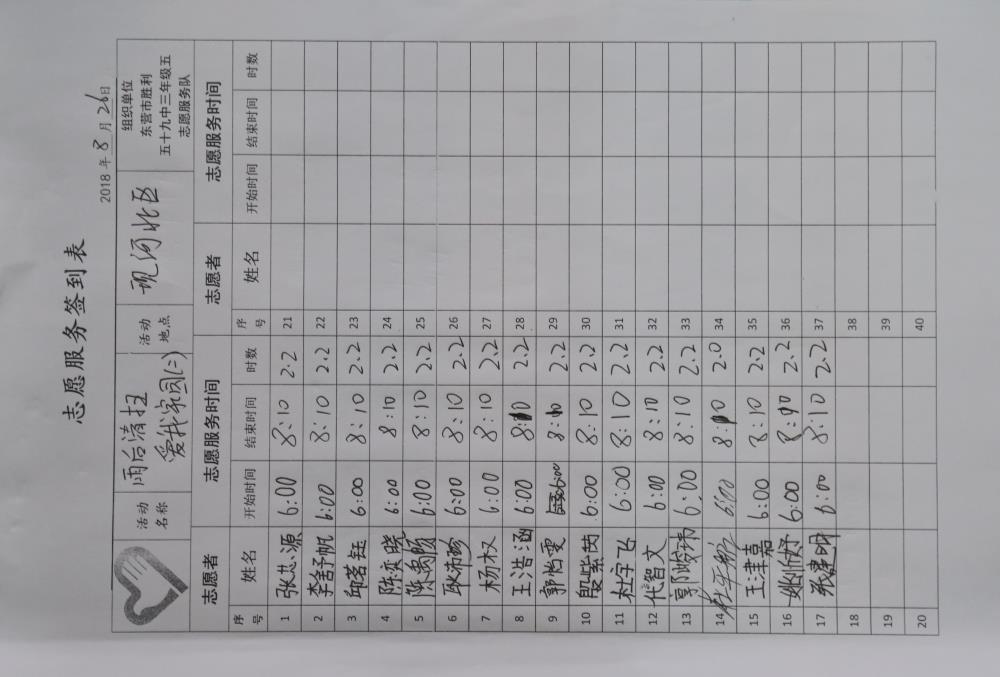 志愿服务签到表
2018 年 8 月 26 日
活动名称 雨后清扫 爱我家园(二) 活动地点 现河北区 组织单位 东营市胜利五十九中三年级五志愿服务队
志愿者 志愿服务时间 志愿者 志愿服务时间
序号 姓名 开始时间 结束时间 时数 序号 姓名 开始时间 结束时间 时数
1 张芯源 6:00 8:10 2.2 21
2 李舍予帆 6:00 8:10 2.2 22
3 邱茗钰 6:00 8:10 2.2 23
4 陈奕晓 6:00 8:10 2.2 24
5 陈禹颐 6:00 8:10 2.2 25
6 耿沛珍 6:00 8:10 2.2 26
7 杨权 6:00 8:10 2.2 27
8 王浩涵 6:00 8:10 2.2 28
9 郭怡雯 6:00 8:10 2.2 29
10 殷紫茵 6:00 8:10 2.2 30
11 杜宇飞 6:00 8:10 2.2 31
12 代智文 6:00 8:10 2.2 32
13 郭峻玮 6:00 8:10 2.2 33
14 6:00 8:10 2.0 34
15 王津嘉 6:00 8:10 2.2 35
16 6:00 8:10 2.2 36
17 张建明 6:00 8:10 2.2 37
18 38
19 39
20 40